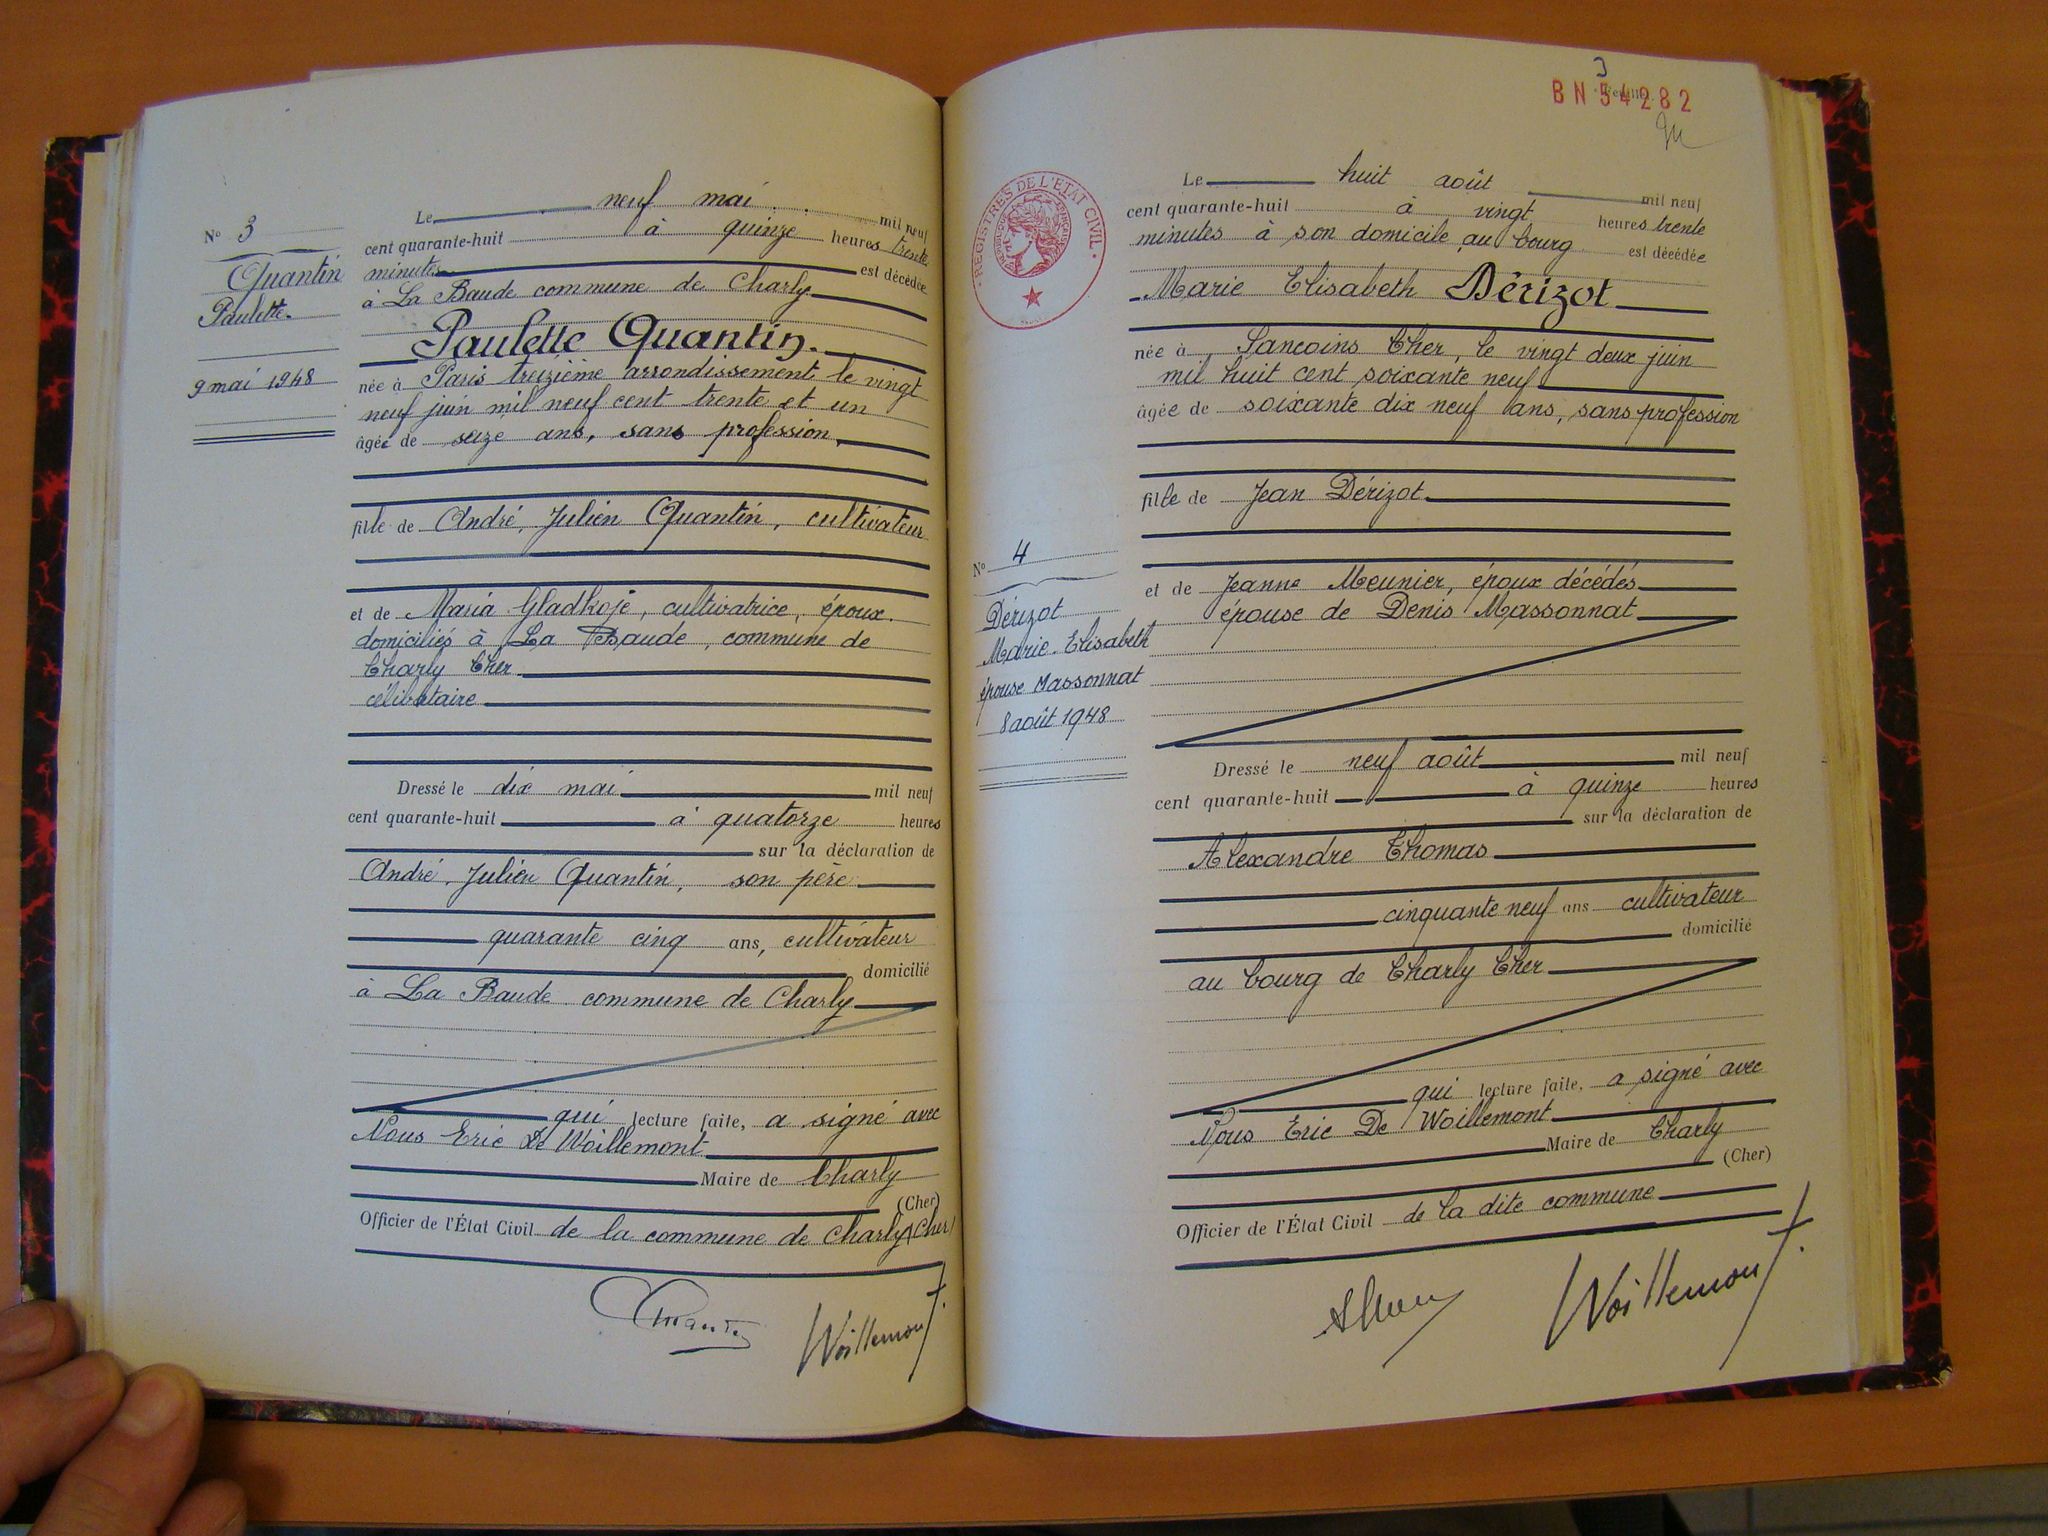 N° 3
Quantin
Paulette.
9 mai 1948
Le neuf mai mil neuf
cent quarante-huit à quinze heures trente
minutes est décédée
à La Baude commune de Charly
Paulette Quantin.
née à Paris treizième arrondissement le vingt
neuf juin mil neuf cent trente et un
âgée de seize ans, sans profession,
fille de André, Julien Quantin, cultivateur
et de Maria Gladkoje, cultivatrice, époux
domiciliés à La Baude, commune de
Charly Cher
célibataire
Dressé le dix mai mil neuf
cent quarante-huit à quatorze heures
sur la déclaration de
André, Julien Quantin, son père
quarante cinq ans, cultivateur
domicilié
à La Baude commune de Charly
qui lecture faite, a signé avec
Nous Eric De Woillemont
Maire de Charly
(Cher)
Officier de l'État Civil de la commune de Charly (Cher)
Woillemont
3
BN 54282
Feuillet
REGISTRES DE L'ETAT CIVIL
Le huit août mil neuf
cent quarante-huit à vingt heures trente
minutes à son domicile au bourg est décédée
Marie Elisabeth Dérizot
née à Sancoins Cher, le vingt deux juin
mil huit cent soixante neuf
âgée de soixante dix neuf ans, sans profession
fille de Jean Dérizot
N° 4
Dérizot
Marie-Elisabeth
épouse Massonnat
8 août 1948
et de Jeanne Meunier, époux décédés
épouse de Denis Massonnat
Dressé le neuf août mil neuf
cent quarante-huit à quinze heures
sur la déclaration de
Alexandre Thomas
cinquante neuf ans cultivateur
domicilié
au bourg de Charly Cher
qui lecture faite, a signé avec
Nous Eric De Woillemont
Maire de Charly
(Cher)
Officier de l'État Civil de la dite commune
Woillemont